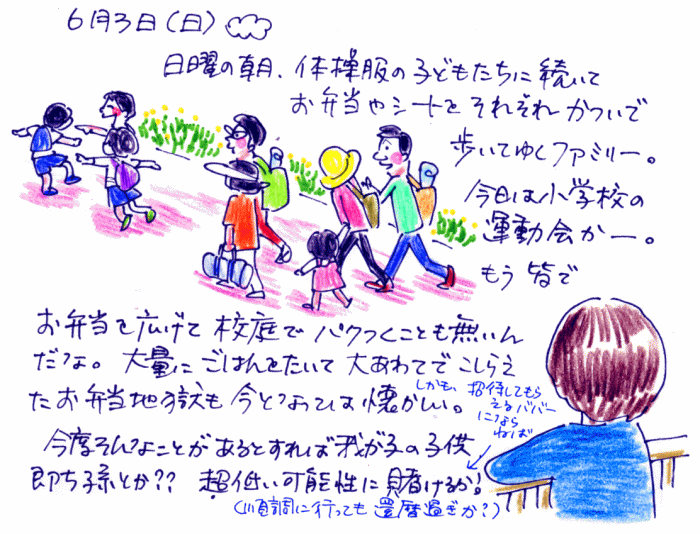 6月3日(日)
日曜の朝、体操服の子どもたちに続いて
お弁当やシートをそれぞれかついで
歩いてゆくファミリー。
今日は小学校の
運動会かー。
もう皆で
お弁当を広げて校庭でパクつくことも無いん
だな。大量にごはんをたいて大あわてでこしらえ
たお弁当地獄も今となっては懐かしい。
しかも、招待してもら
えるババー
になら
ねば
今度そんなことがあるとすれば我が子の子供
即ち孫とか?? 超低い可能性に賭けるか!
(順調に行っても還暦過ぎか?)